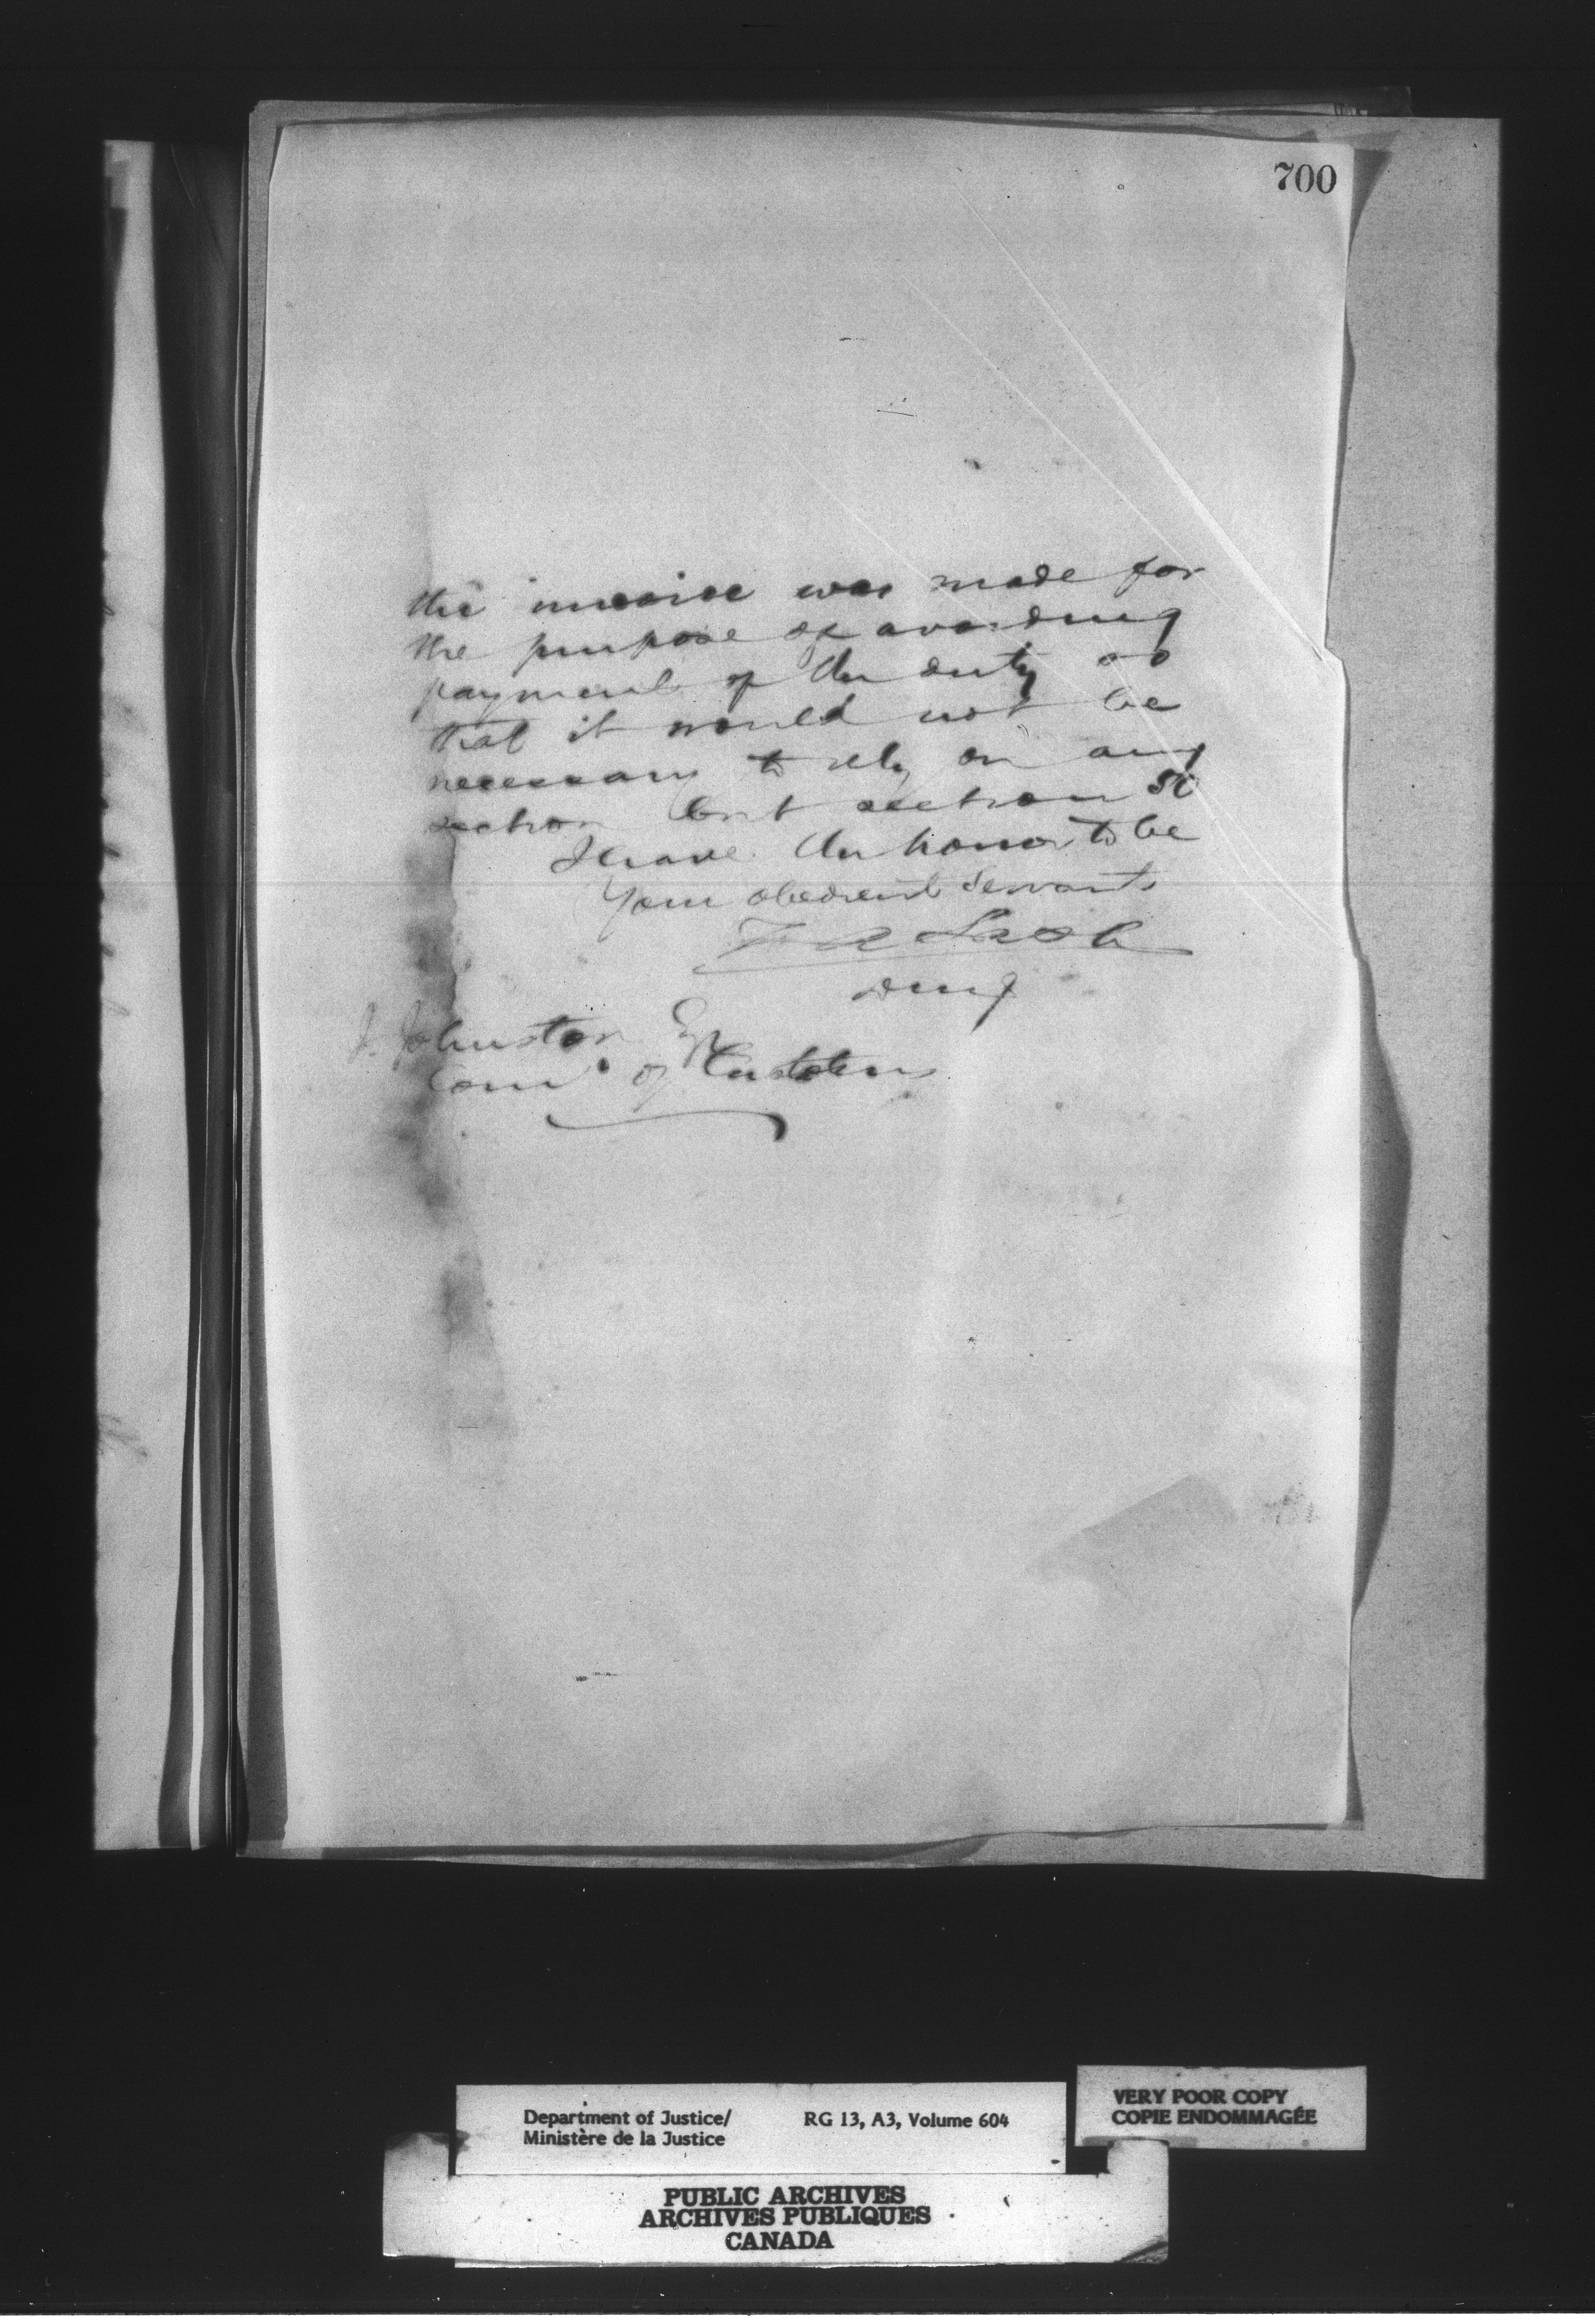 700
the invoice was made for
the purpose of avoiding
payment of the duty so
that it would not be
necessary to rely on any
section but section
I have the honor to be
Your obedient Servant
Z A Lash
DMJ
J. Johnston Esq
Comr of Customs
Department of Justice/ RG 13, A3, Volume 604
Ministère de la Justice
VERY POOR COPY
COPIE ENDOMMAGÉE
PUBLIC ARCHIVES
ARCHIVES PUBLIQUES
CANADA